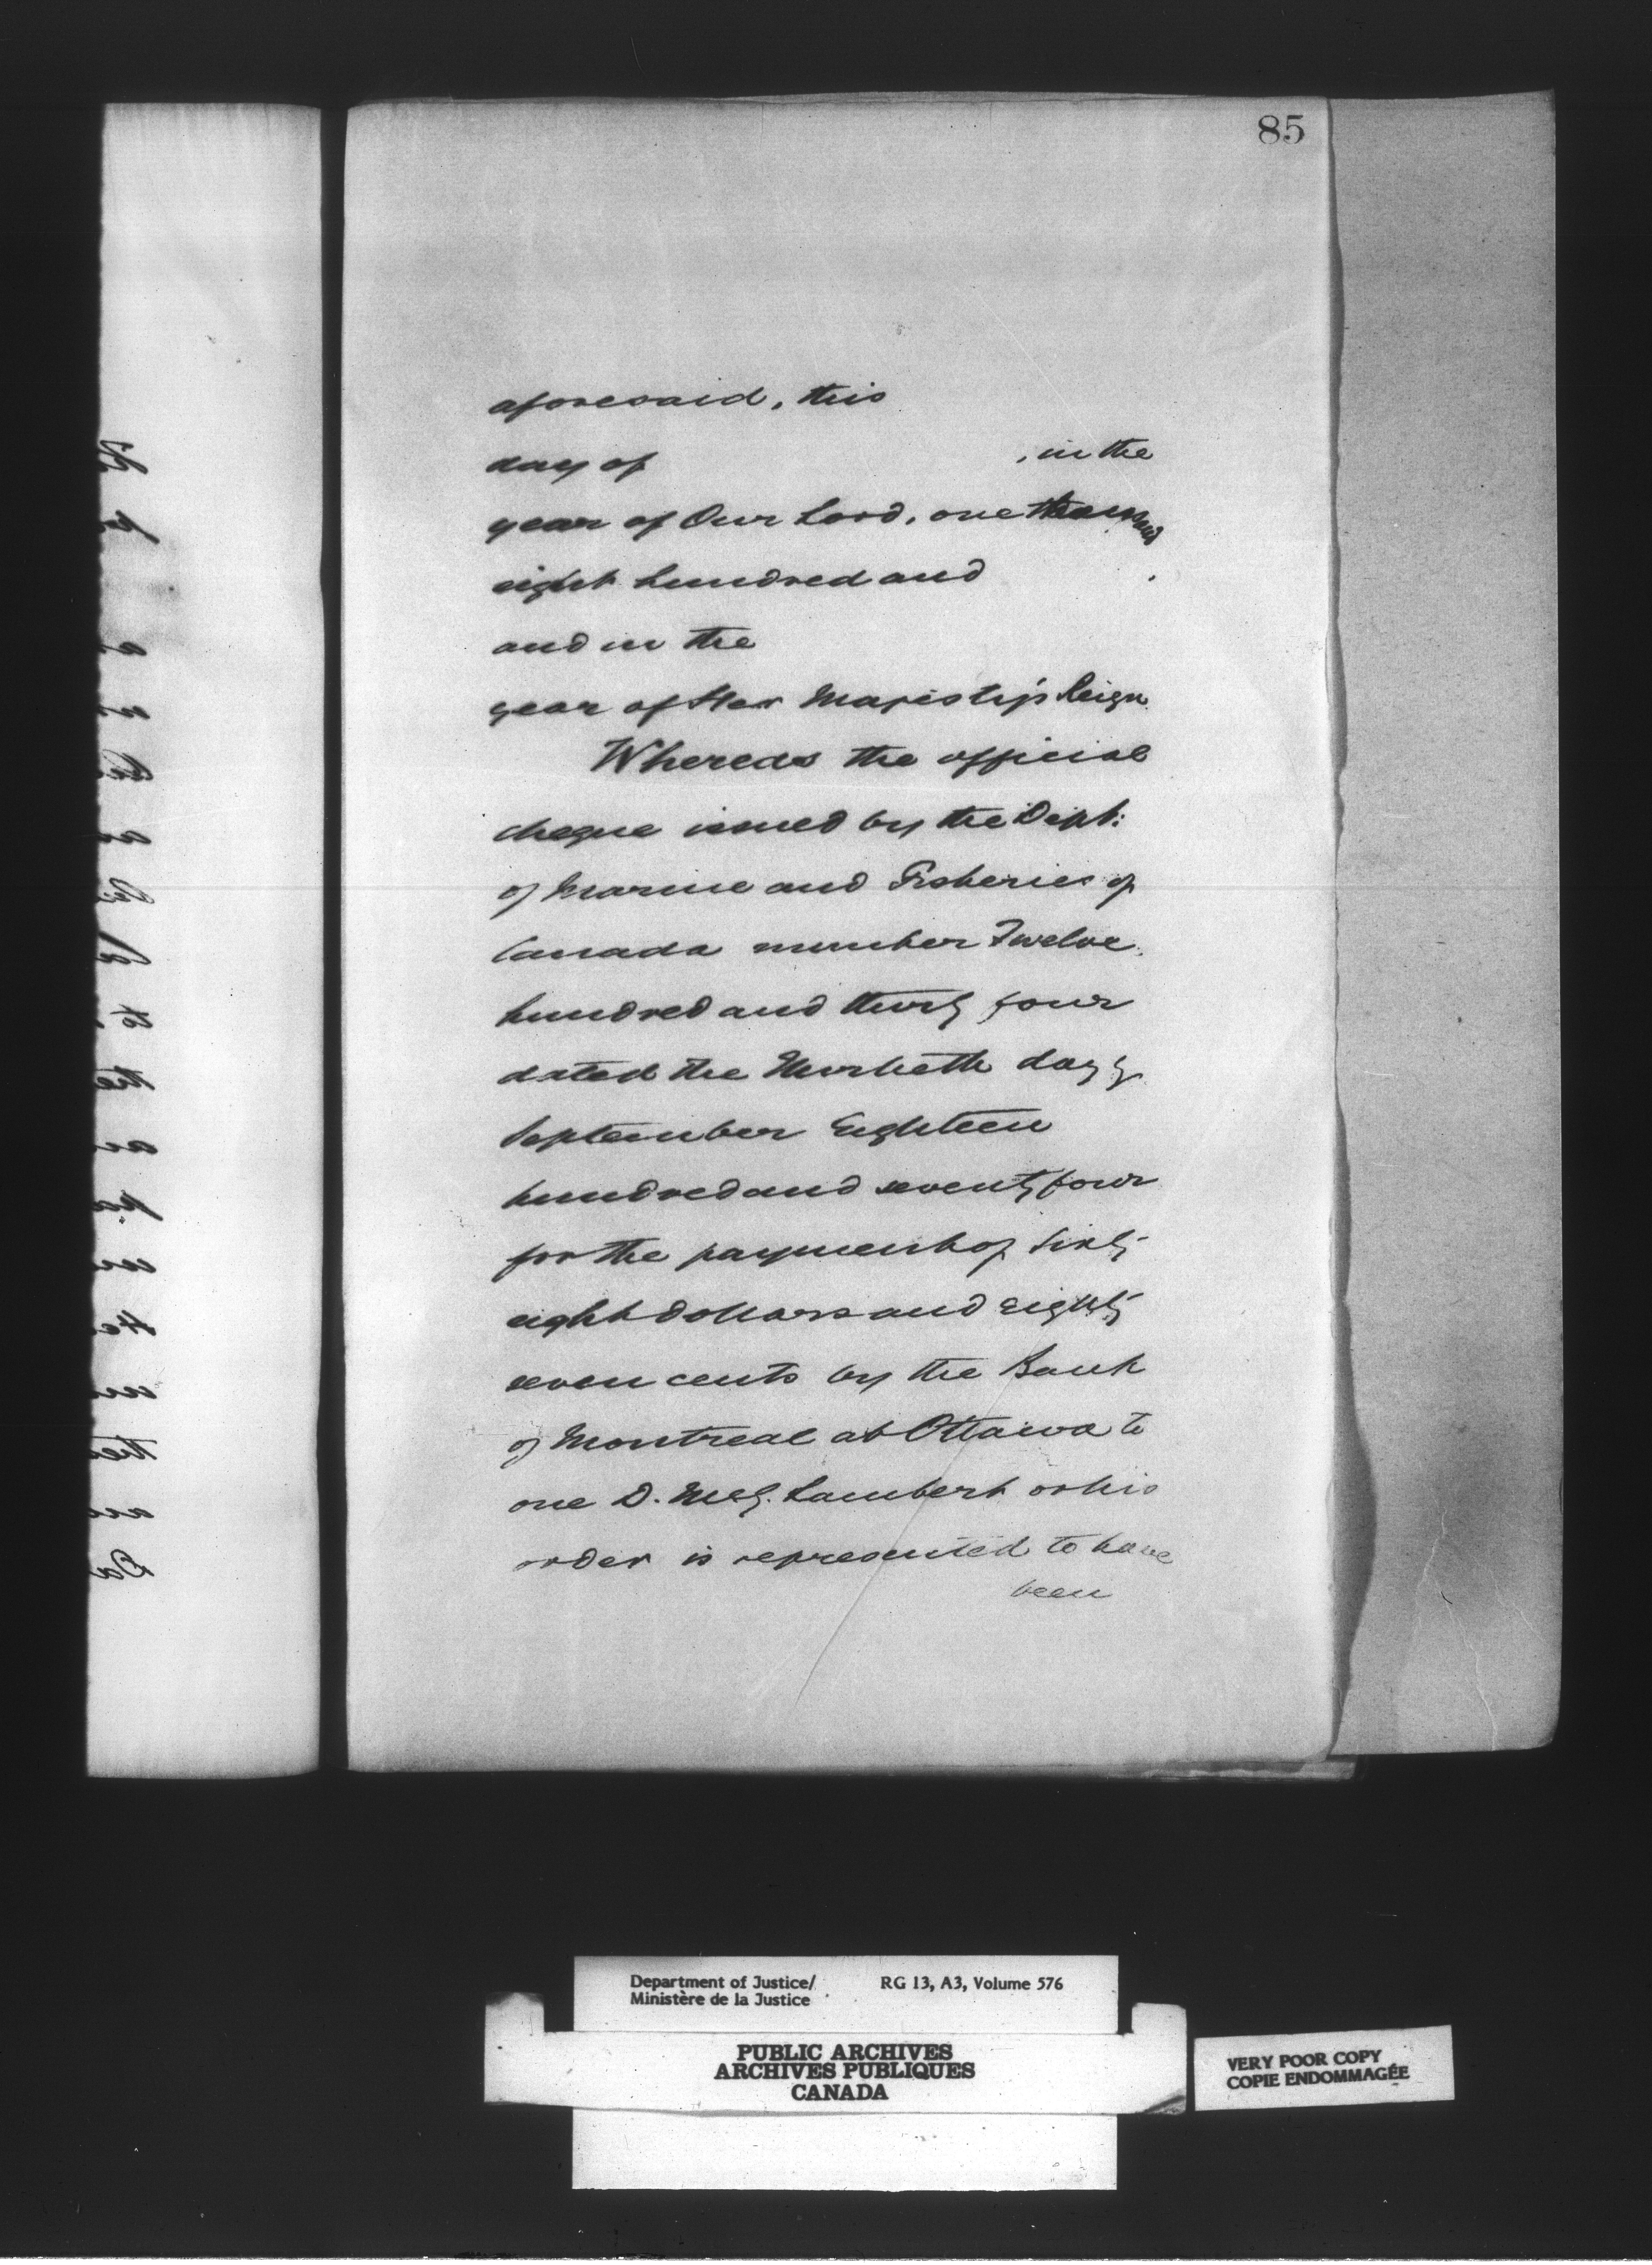 85
aforesaid, this
day of , in the
year of Our Lord, one thousand
eight hundred and .
and in the
year of Her Majesty's Reign.
Whereas the official
cheque issued by the Dept:
of Marine and Fisheries of
Canada number Twelve
hundred and thirty four
dated the thirtieth day of
September Eighteen
hundred and seventy four
for the payment of Sixty
eight dollars and eighty
seven cents by the Bank
of Montreal at Ottawa to
one D. Lambert or his
order is represented to have
been
Department of Justice/ RG 13, A3, Volume 576
Ministère de la Justice
PUBLIC ARCHIVES
ARCHIVES PUBLIQUES
CANADA
VERY POOR COPY
COPIE ENDOMMAGÉE